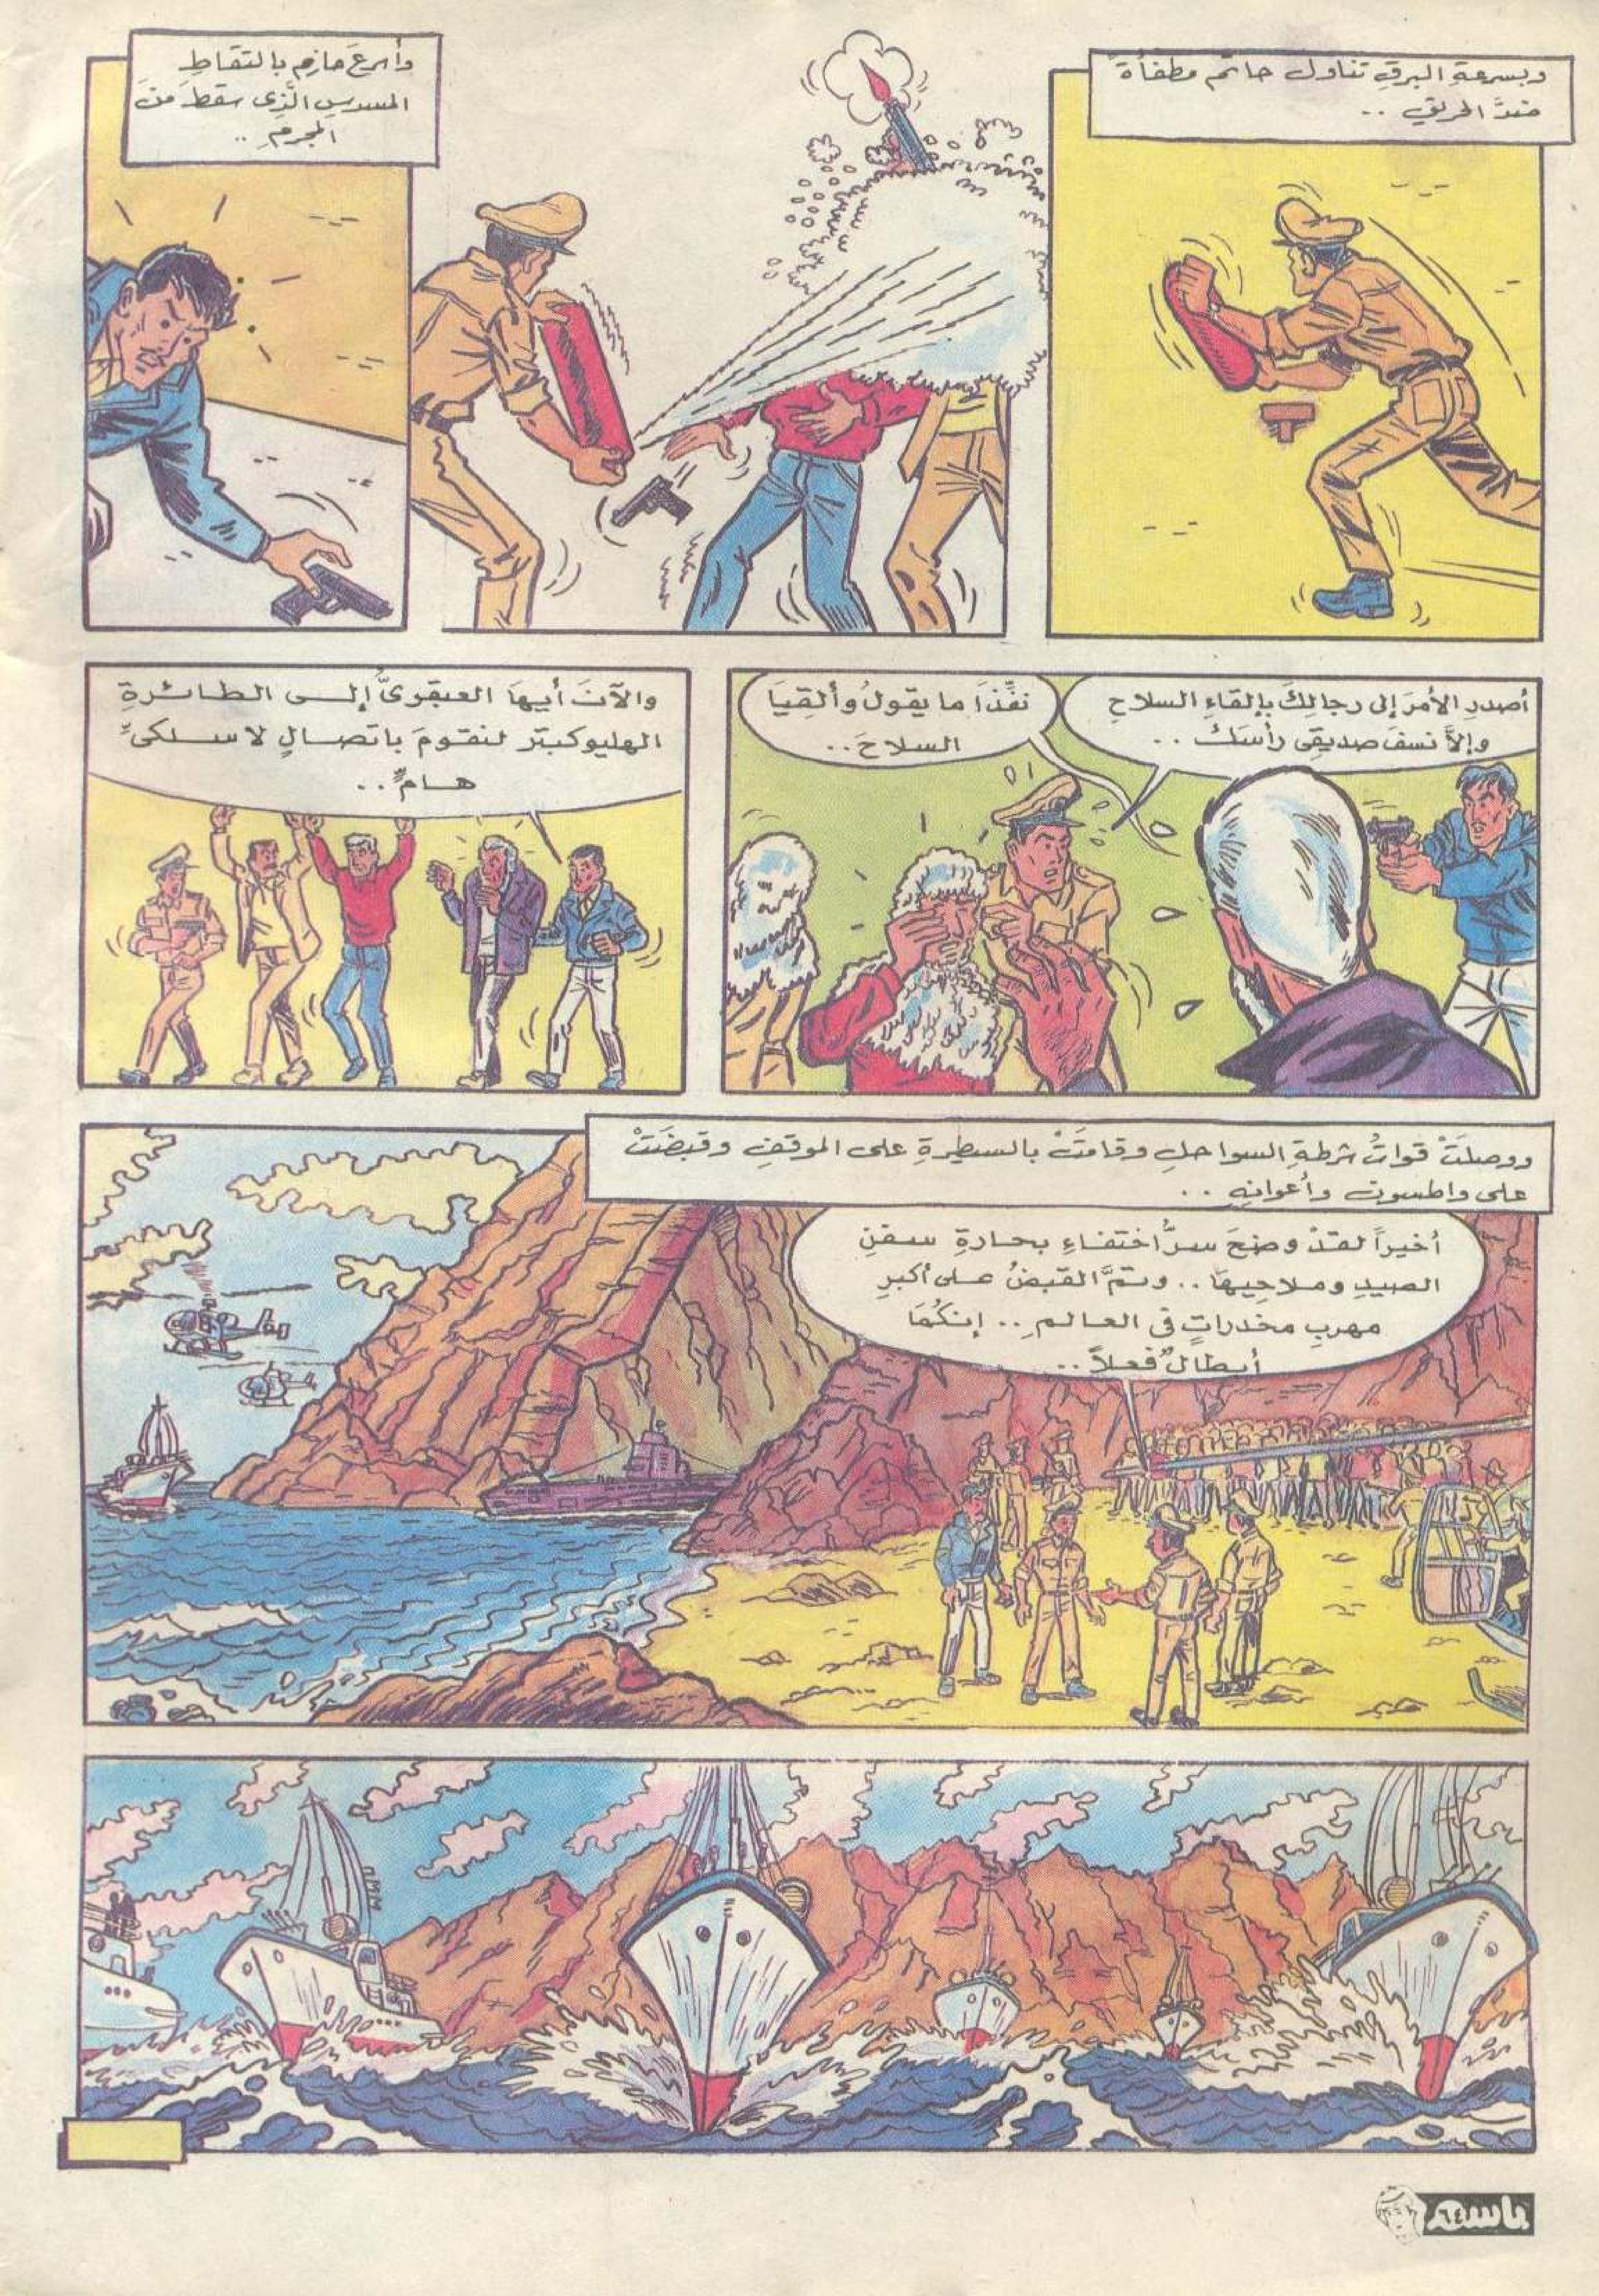 وبسرعةِ البرقِ تناول حاتم مطفأةً
ضدَّ الحريقِ ..
وأسرعَ حازم بالتقاطِ
المسدسِ الَّذِى سقطَ منَ
المجرمِ ..
أصدرِ الأمرَ إلى رجالِكَ بإلقاءِ السلاحِ
وإلاَّ نسفَ صديقِى رأسَكَ ..
نفِّذَا ما يقولُ وألقِيَا
السلاحَ ..
والآنَ أيهَا العبقرىُّ إلى الطائرةِ
الهليوكبتر لنقومَ باتصالٍ لاسلكىٍّ
هامٍّ ..
ووصلَتْ قواتُ شرطةِ السواحلِ وقامَتْ بالسيطرةِ على الموقفِ وقبضَتْ
على واطسون وأعوانِهِ ..
أخيراً لقدْ وضحَ سرُّ اختفاءِ بحارةِ سفنِ
الصيدِ وملاحِيهَا .. وتمَّ القبضُ على أكبرِ
مهربِ مخدراتٍ فى العالمِ .. إنكُمَا
أبطالٌ فعلاً ..
باسم
٦٤